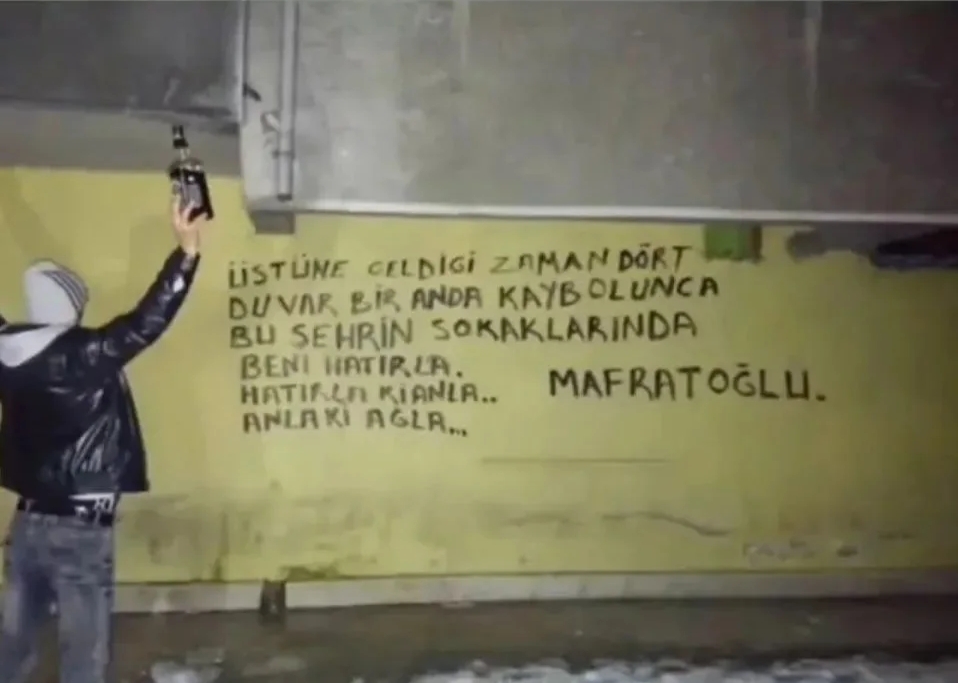 ÜSTÜNE GELDIGI ZAMAN DÖRT
DUVAR BİR ANDA KAYBOLUNCA
BU SEHRİN SOKAKLARINDA
BENI HATIRLA.
HATIRLA KIANLA..
ANLAKI AGLA...
MAFRATOĞLU.